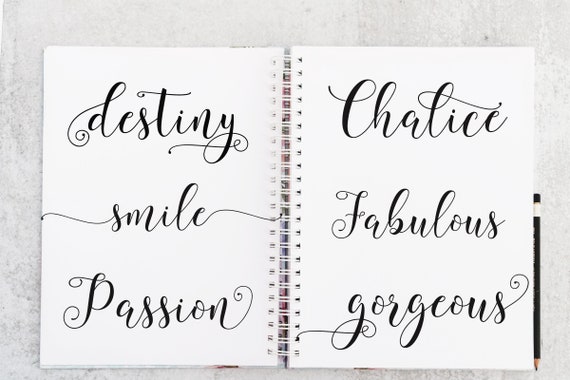 destiny
smile
Passion
Chalice
Fabulous
gorgeous